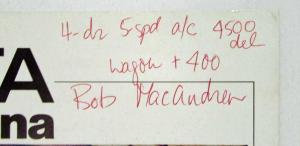 4-dr 5-spd a/c 4500
del
wagon + 400
TA
Bob MacAndrew
na